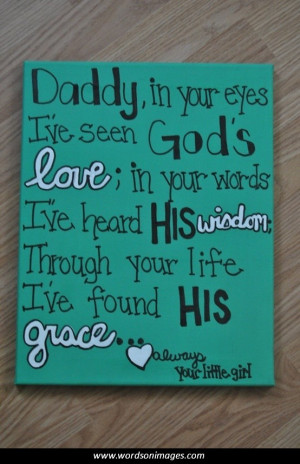 Daddy, in your eyes
I've seen God's
love; in your words
I've heard HIS wisdom;
Through your life
I've found HIS
grace...
always
your little girl
www.wordsonimages.com